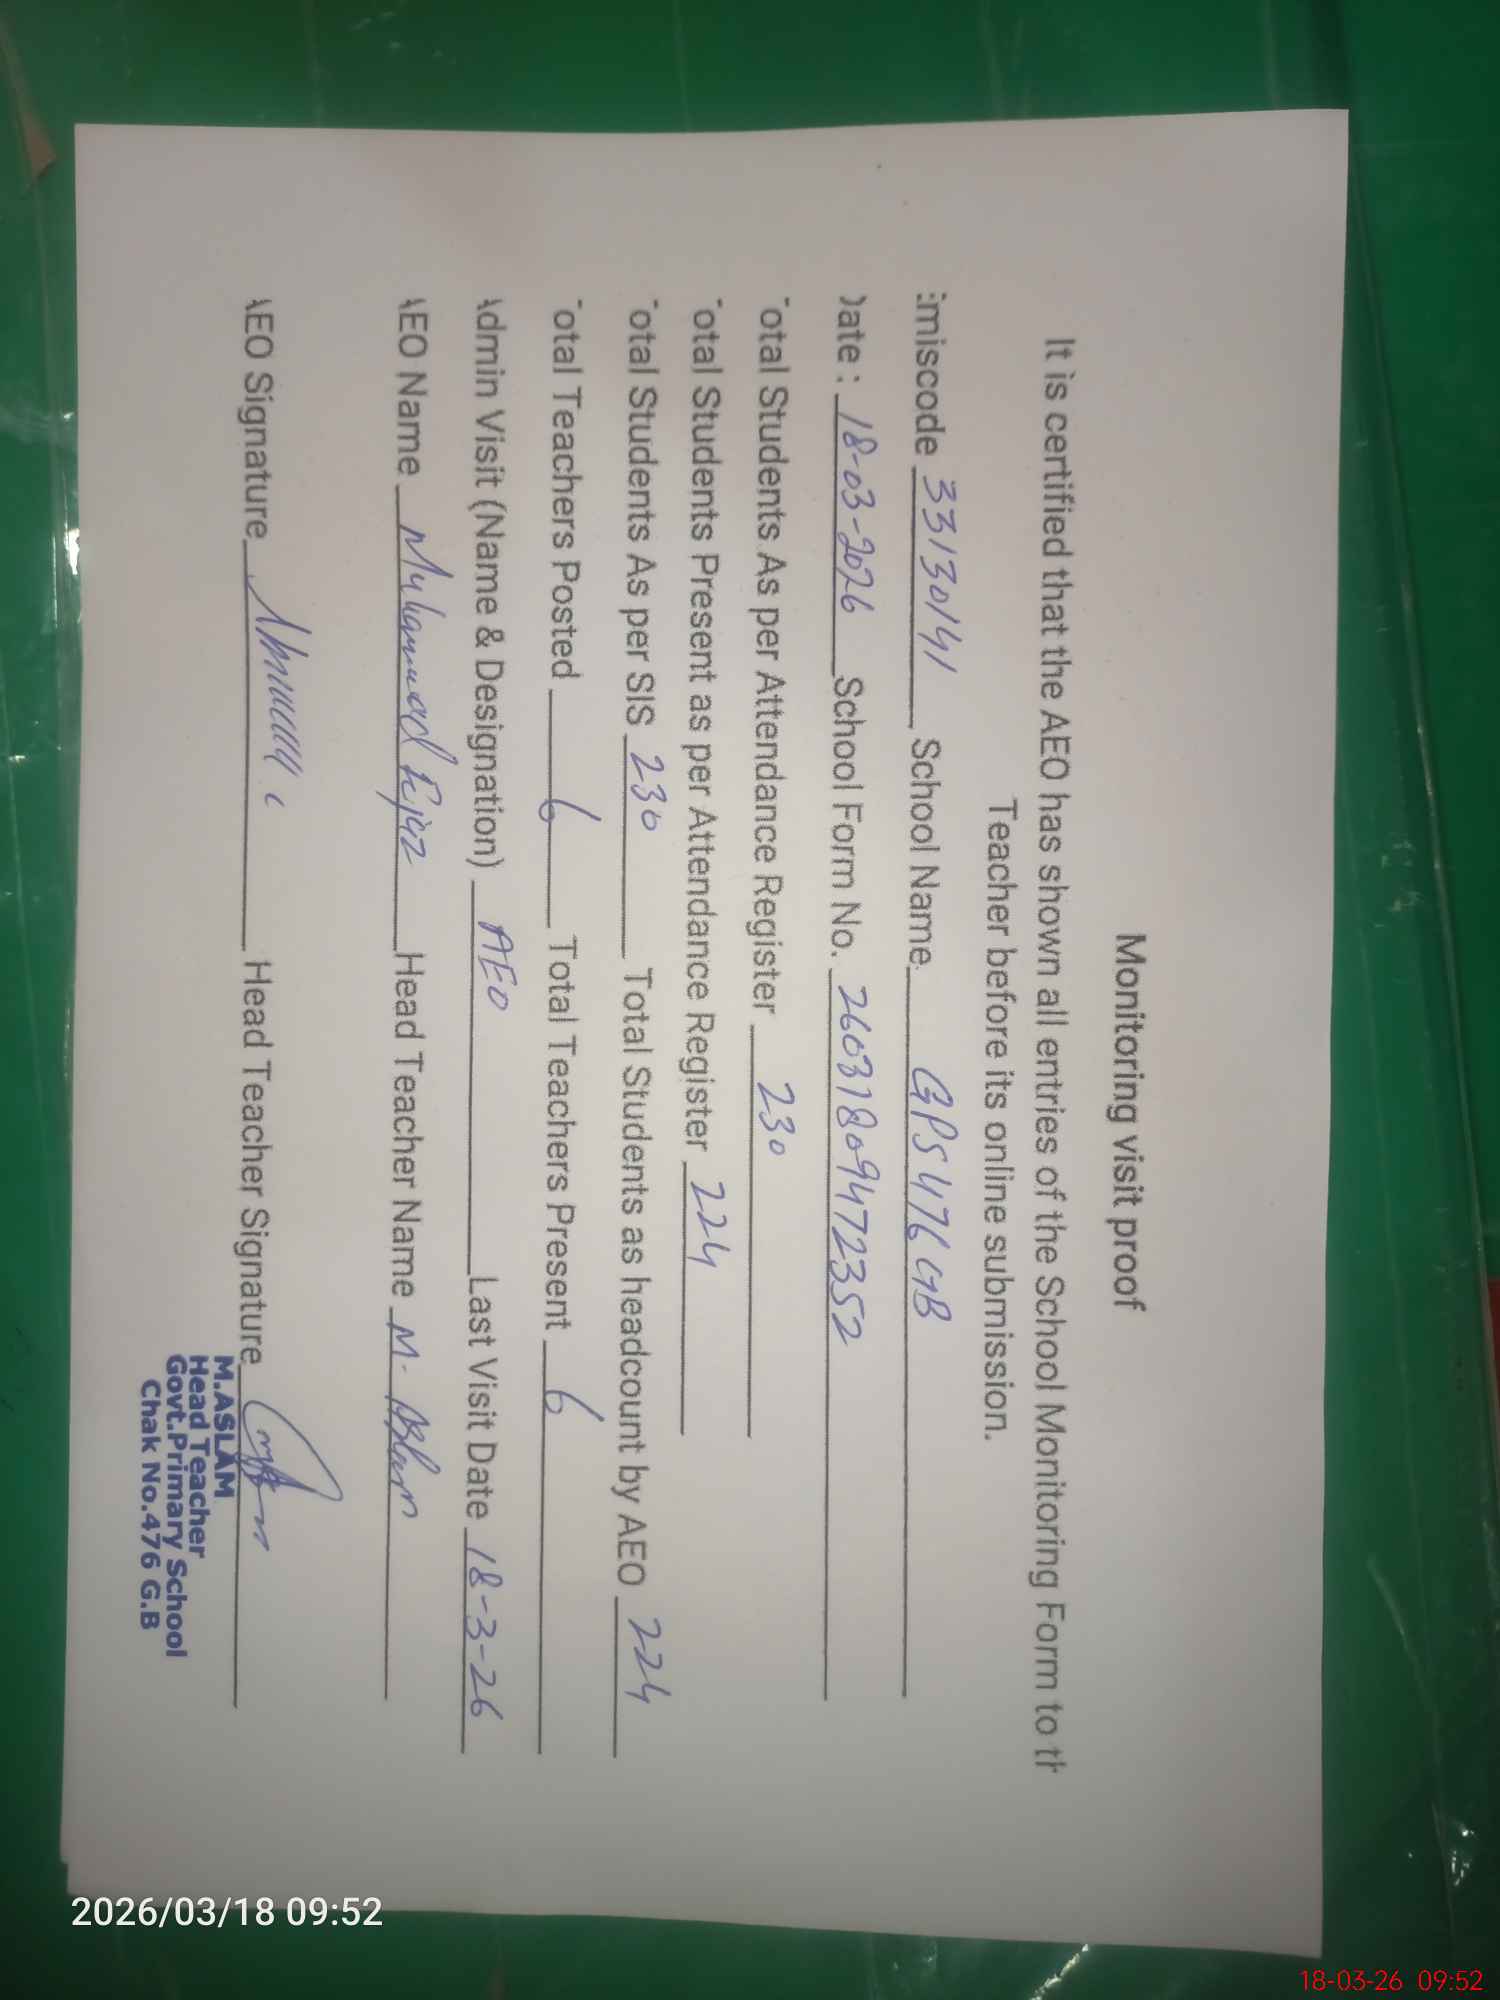 Monitoring visit proof
It is certified that the AEO has shown all entries of the School Monitoring Form to th
Teacher before its online submission.
Emiscode 33130141 School Name GPS 476 GB
Date : 18-03-2026 School Form No. 26031809472352
Total Students As per Attendance Register 230
Total Students Present as per Attendance Register 224
Total Students As per SIS 230 Total Students as headcount by AEO 224
Total Teachers Posted 6 Total Teachers Present 6
Admin Visit (Name & Designation) AEO Last Visit Date 18-3-26
AEO Name Muhammad Ejaz Head Teacher Name M. Aslam
AEO Signature Head Teacher Signature
M.ASLAM
Head Teacher
Govt.Primary School
Chak No.476 G.B
2026/03/18 09:52
18-03-26 09:52